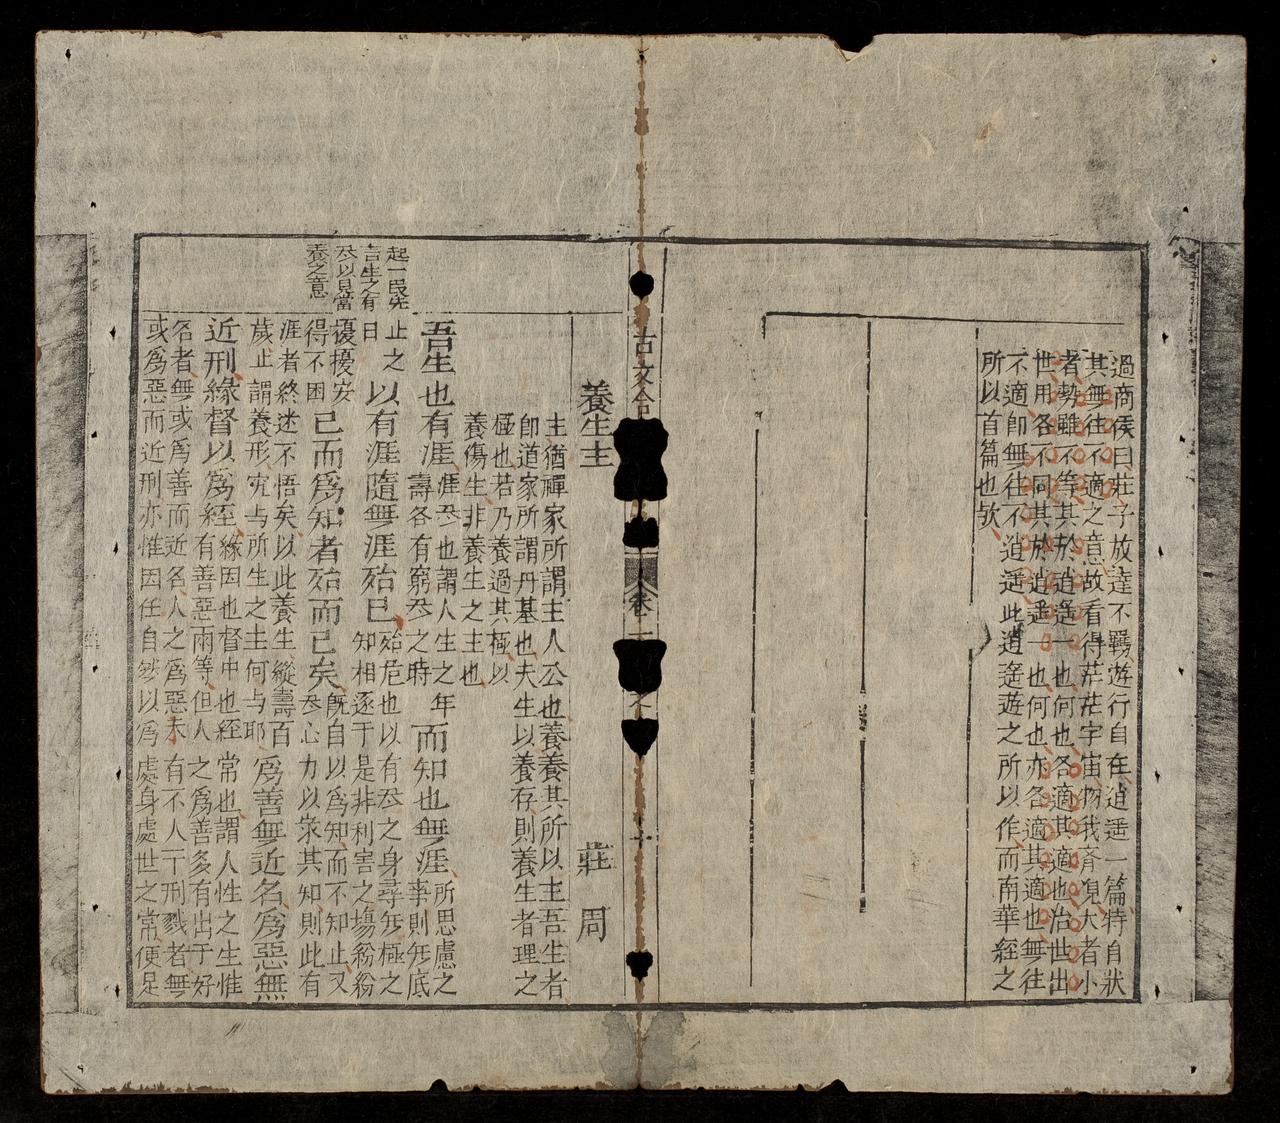 過商侯曰莊子放達不羈遊行自在逍遥一篇特自狀
其無往不適之意故看得茫茫宇宙物我齊觀大者小
者勢雖不等其於逍遥一也何也各適其適也治世出
世用各不同其於逍遥一也何也亦各適其適也無往
不適即無往不逍遥此逍遥遊之所以作而南華經之
所以首篇也歟
古文合
卷一之
十
養生主
莊周
主猶禪家所謂主人公也養養其所以主吾生者
即道家所謂丹基也夫生以養存則養生者理之
極也若乃養過其極以
養傷生非養生之主也
起一段先
言生之有
尽以見當
養之意
吾生也有涯
涯尽也謂人生之年
壽各有窮尽之時
而知也無涯
所思慮之
事則无底
止之
日
以有涯隨無涯殆已
殆危也以有尽之身尋无極之
知相逐于是非利害之場紛紛
擾擾安
得不困
已而爲知者殆而已矣
既自以爲知而不知止又
尽心力以求其知則此有
涯者終迷不悟矣以此養生縱壽百
歲止謂養形究与所生之主何与耶
爲善無近名爲惡無
近刑緣督以爲經
緣因也督中也經常也謂人性之生惟
有善惡兩等但人之爲善多有出于好
名者無或爲善而近名人之爲惡未有不入于刑戮者無
或爲惡而近刑亦惟因任自然以爲處身處世之常便足